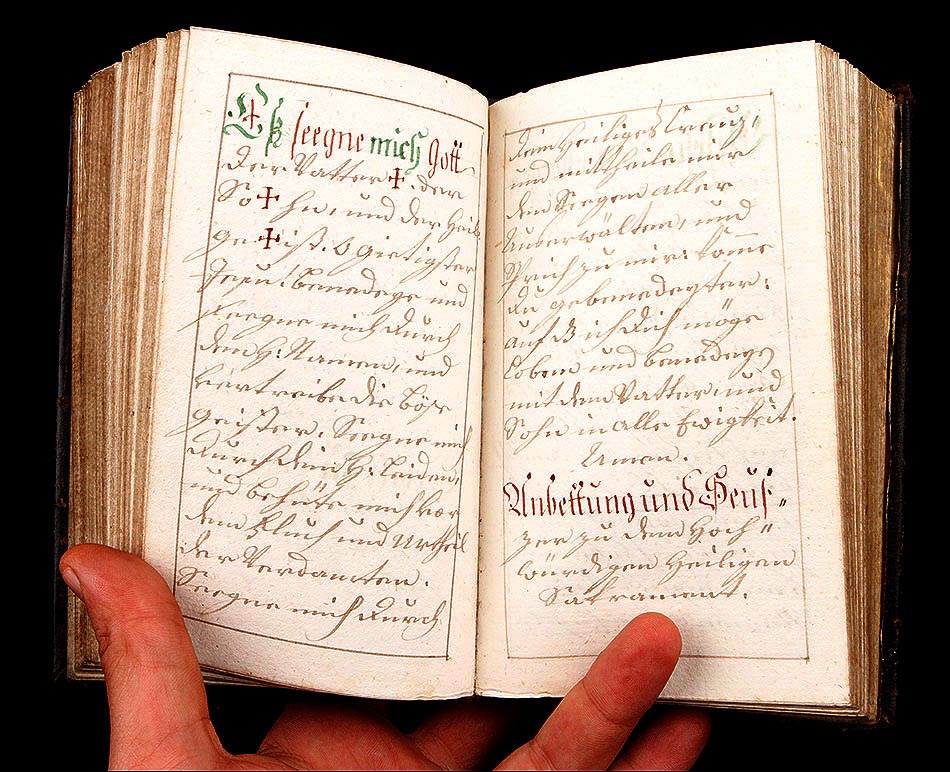 Es seegne mich Gott
der Vatter ✝. der
So ✝ hn, und der Heil:
ge ✝ ist. O gietigster
Jesu! benedeye und
seegne mich durch
dein H: Namen, und
vertreibe die böse
geister. Seegne mich
durch dein H: leiden,
und behüte mich vor
dem Fluch und Urtheil
der Verdamten.
Seegne mich durch
dein Heiliges Creuz,
und mittheile mir
den Seegen aller
Auserwälten, und
Sprich zu mir: komme
du gebenedeyter:
auf daß ich dich möge
loben und benedeyen
mit dem Vatter, und
Sohn in alle Ewigkeit.
Amen.
Anbettung und Seuf=
zer zu dem Hoch=
würdigen Heiligen
Sakrament.